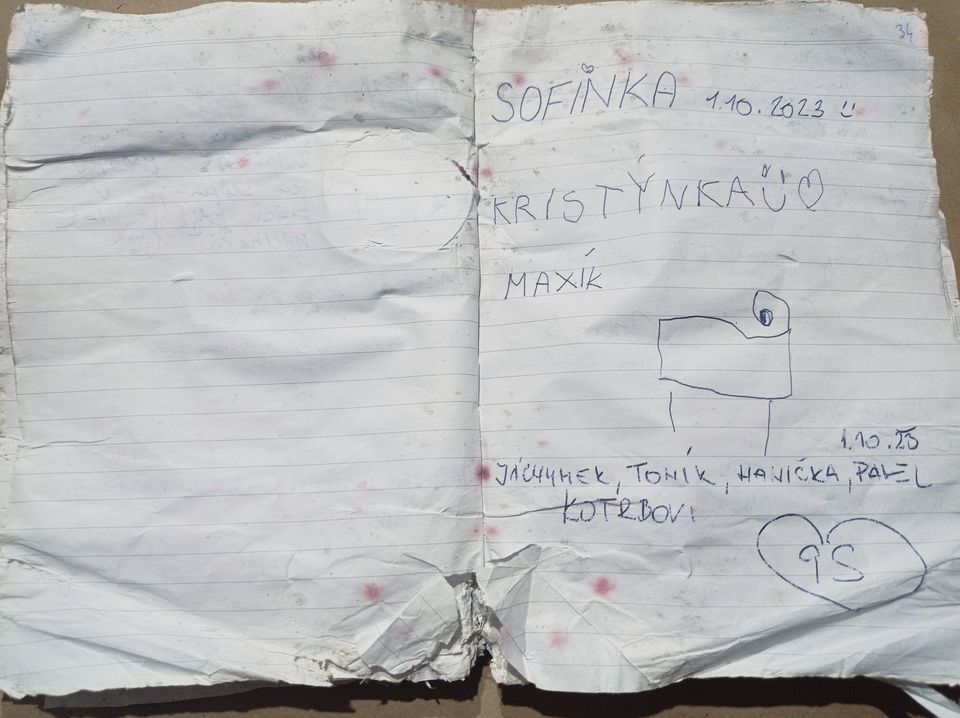 34
SOFINKA 1.10.2023 :)
KRISTÝNKA Ü ♡
MAXÍK
1.10.23
JÁCHYMEK, TONÍK, HANIČKA, PAVEL
KOTRBOVI